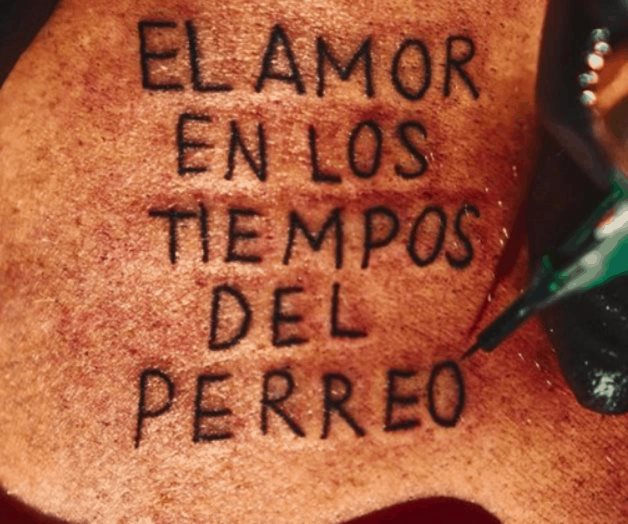 EL AMOR
EN LOS
TIEMPOS
DEL
PERREO